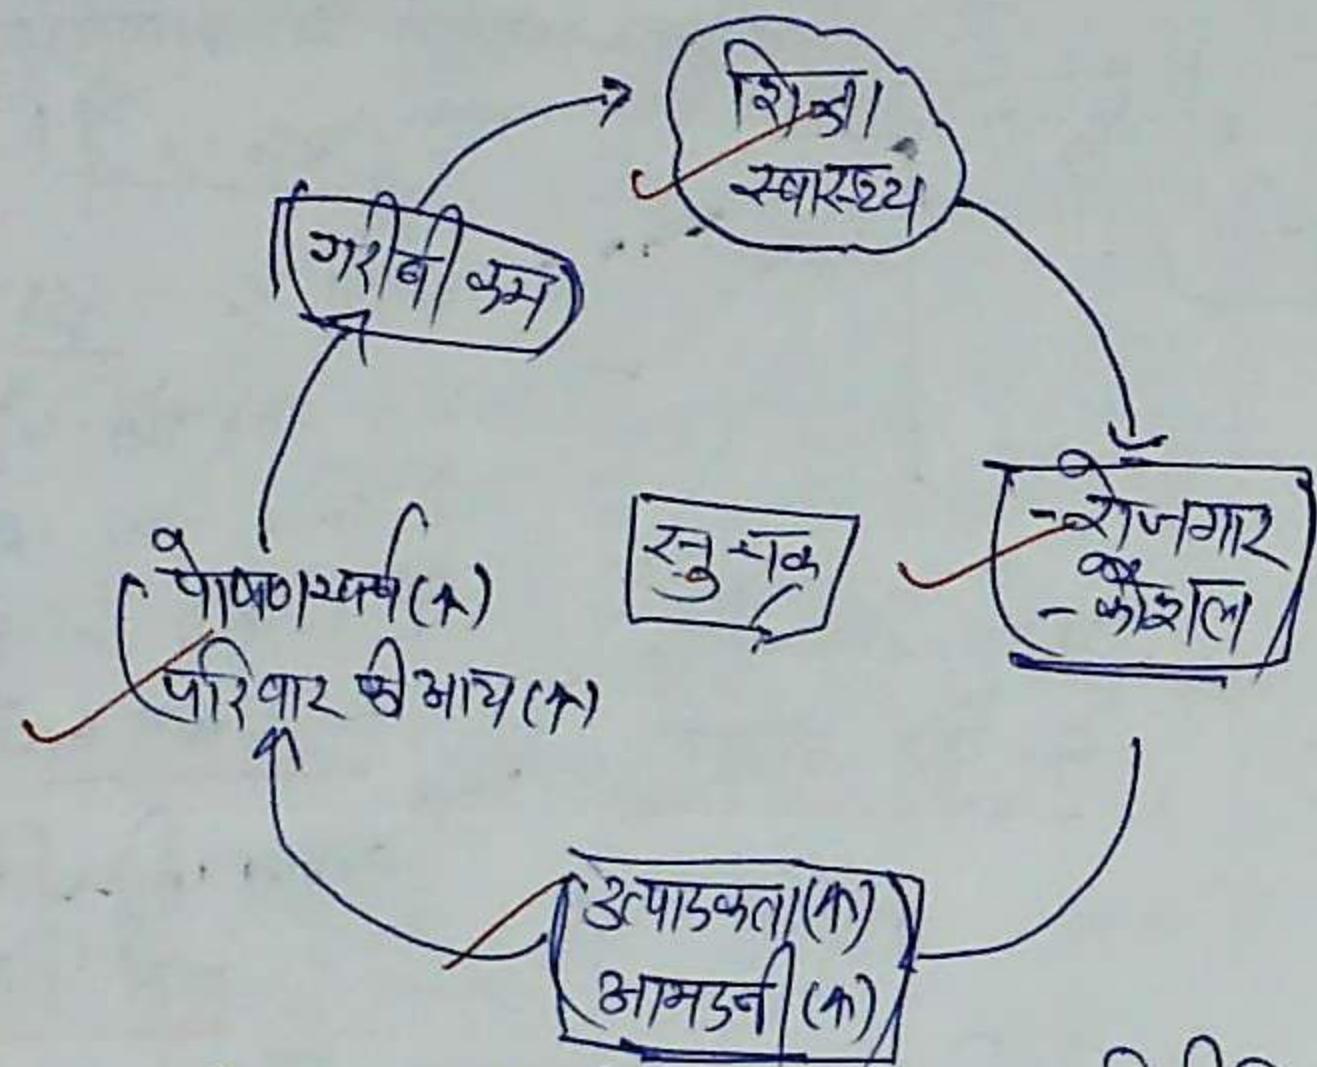 शिक्षा
स्वास्थ्य
- रोजगार
- कौशल
उत्पादकता (↑)
आमदनी (↑)
पोषण खर्च (↑)
परिवार की आय (↑)
गरीबी कम
सुचक्र